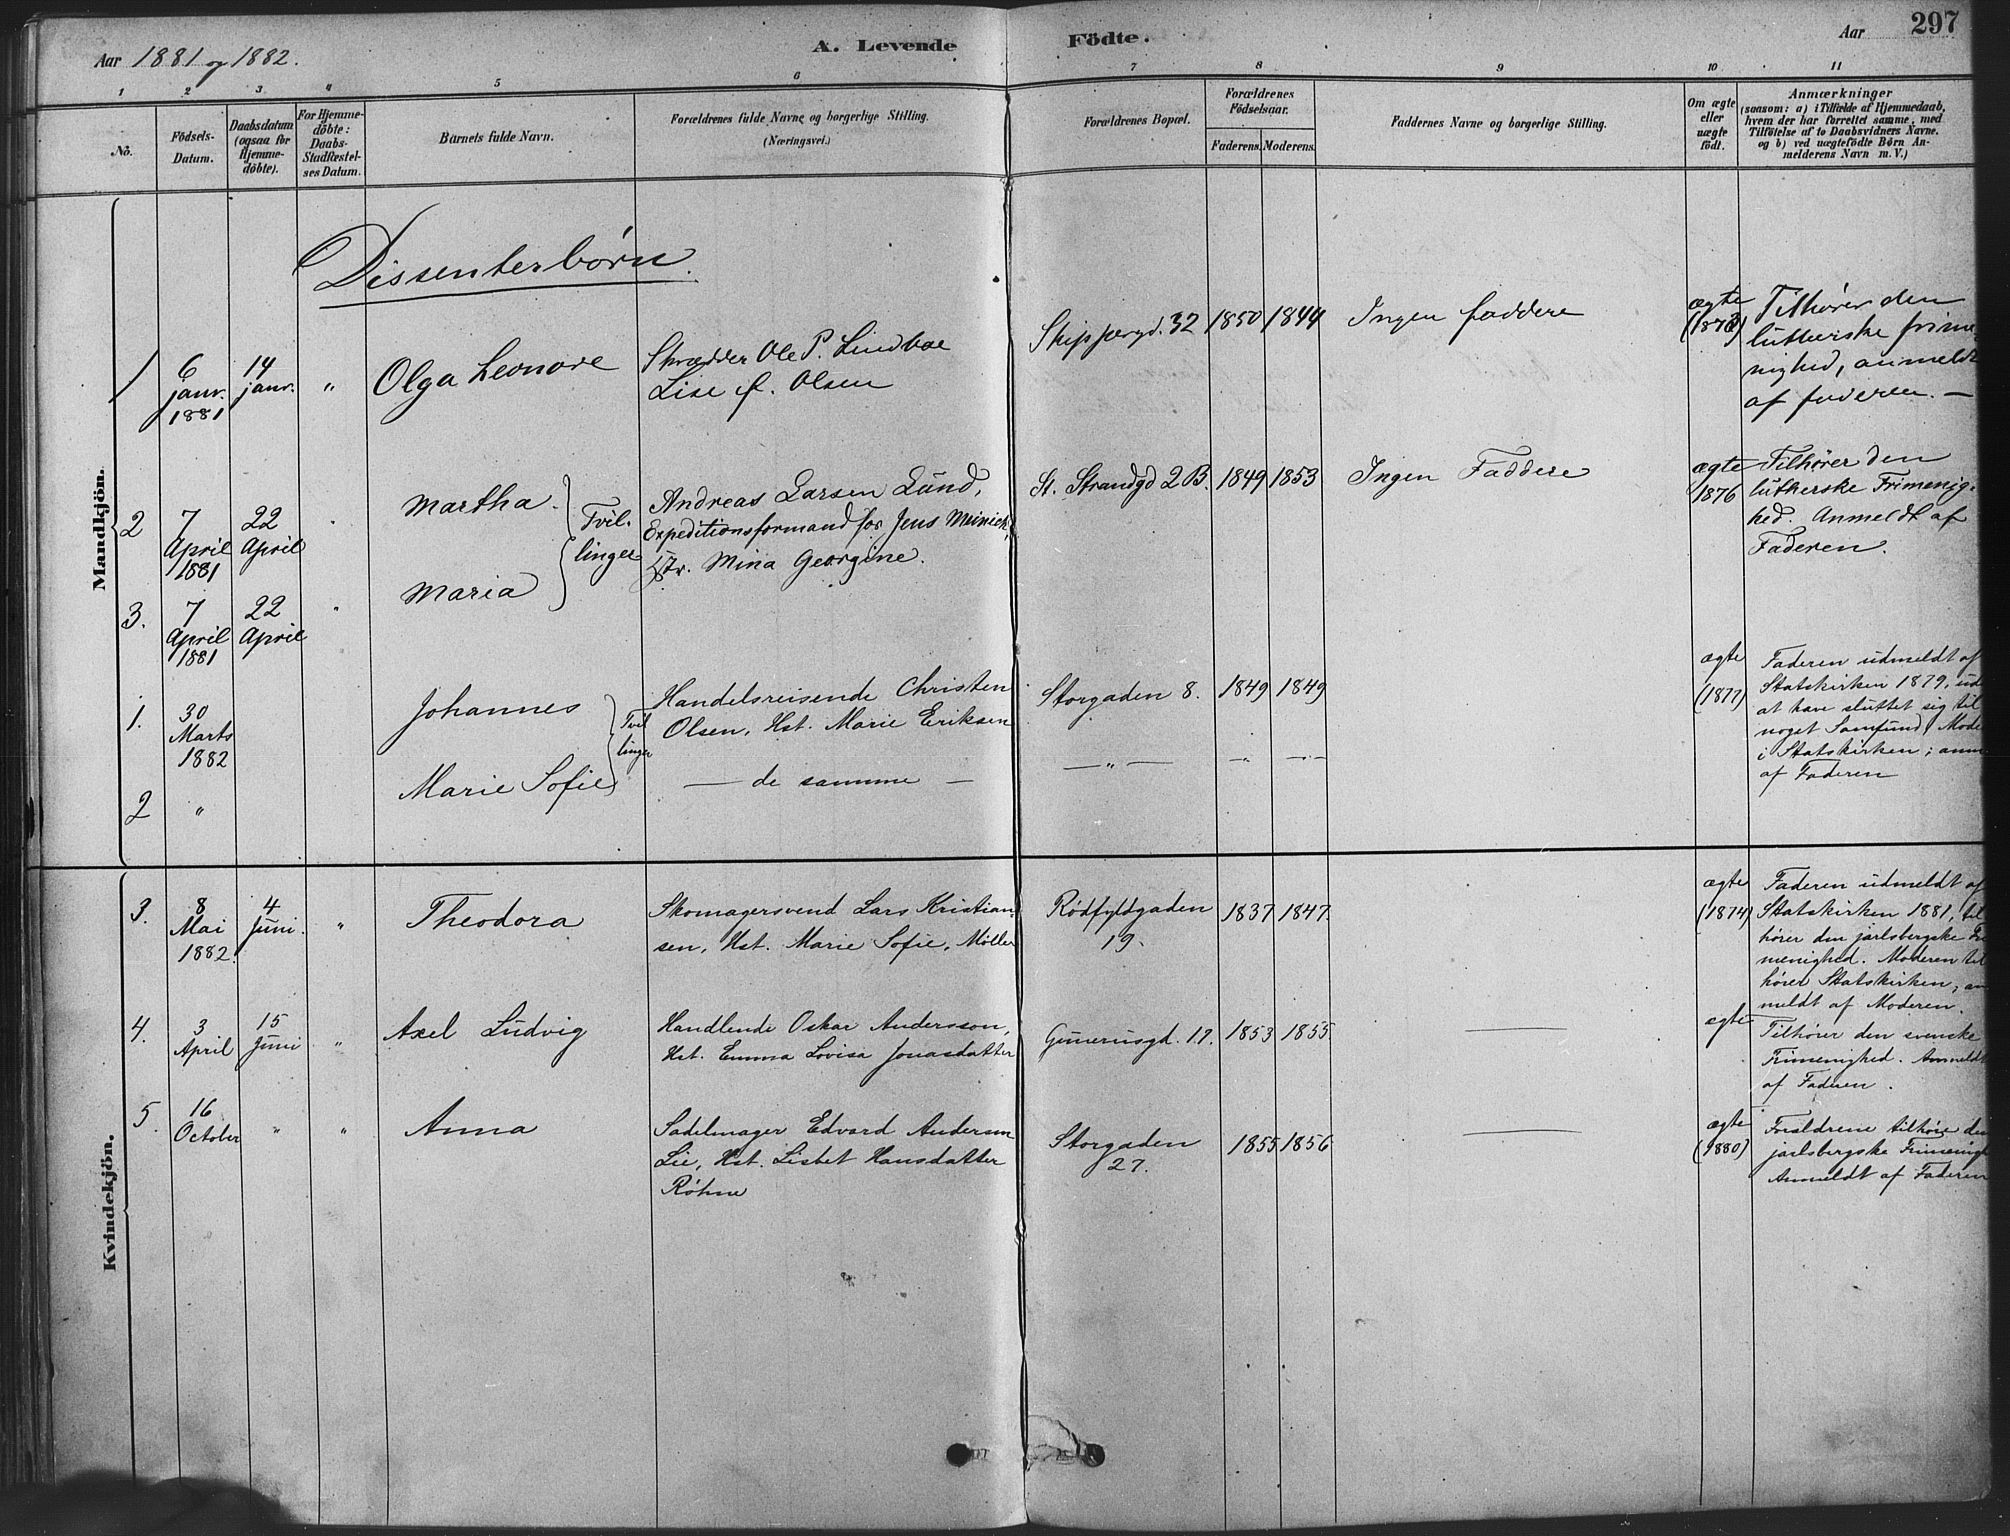 Aar 1881 og 1882.
A. Levende Födte.
Aar
297
1 2 3 4 5 6 7 8 9 10 11
No.
Födsels-Datum.
Daabsdatum (ogsaa for Hjemmedöbte).
For Hjemmedöbte: Daabs-Stadfæstelses Datum.
Barnets fulde Navn.
Forældrenes fulde Navne og borgerlige Stilling. (Næringsvei.)
Forældrenes Bopæl.
Forældrenes Födselsaar.
Faderens. Moderens.
Faddernes Navne og borgerlige Stilling.
Om ægte eller uægte födt.
Anmærkninger
(saasom: a) i Tilfælde af Hjemmedaab, hvem der har forrettet samme, med Tilföielse af to Daabsvidners Navne. og b) ved uægtefödte Børn Anmelderens Navn m. V.)
Dissenterbørn.
Mandkjön.
1 6 janr. 1881 14 janr. "
Olga Leonore
Skrædder Ole P. Lindboe
Lise f. Olsen
Skippergd. 32 1850 1844 Ingen faddere
ægte
Tilhører den
lutherske frime
nighed, anmeldt
af faderen. —
2 7 April 1881 22 April "
Martha.
Tvil-
linger
Andreas Larsen Lund,
Expeditionsformand for Jens Meinich,
Hstr. Mina Georgine.
St. Strandgd 2 B. 1849 1853 Ingen Faddere
ægte
1876
Tilhører den
lutherske Frimenig-
hed. Anmeldt af
Faderen.
3. 7 April 1881 22 April "
Maria
1. 30 Marts 1882
Johannes
Tvil
linger
Handelsreisende Christen
Olsen, Hst. Marie Eriksen
Storgaden 8. 1849 1849
ægte
(1877)
Faderen udmeldt af
Statskirken 1879, uden
at have sluttet sig til
noget Samfund, Mode
i Statskirken; anm
af Faderen
2 "
Marie Sofie
— de samme —
— " — — " — — " —
Kvindekjön.
3. 8 Mai 1882. 4 Juni. "
Theodora
Skomagersvend Lars Kristian-
sen, Hst. Marie Sofie, Møller
Rødfyldgaden
19.
1837 1847.
ægte
(1874)
Faderen udmeldt af
Statskirken 1881, til
hører den jarlsbergske Fri
menighed. Moderen til
hører Statskirken, an
meldt af Moderen.
4. 3 April 15 Juni "
Axel Ludvig
Handlende Oskar Andersson,
Hst. Emma Lovisa Jonasdatter
Gunerusgd. 17. 1853 1855.
ægte
Tilhører den svenske
Frimenighed. Anmeldt
af Faderen.
5. 16 October " "
Anna
Sadelmager Edvard Andersen
Lie, Hst. Lisbet Hansdatter
Røhne
Storgaden
27.
1855 1856
ægte
(1880)
Forældrene tilhøre den
jarlsbergske Frimenigh
Anmeldt af Faderen